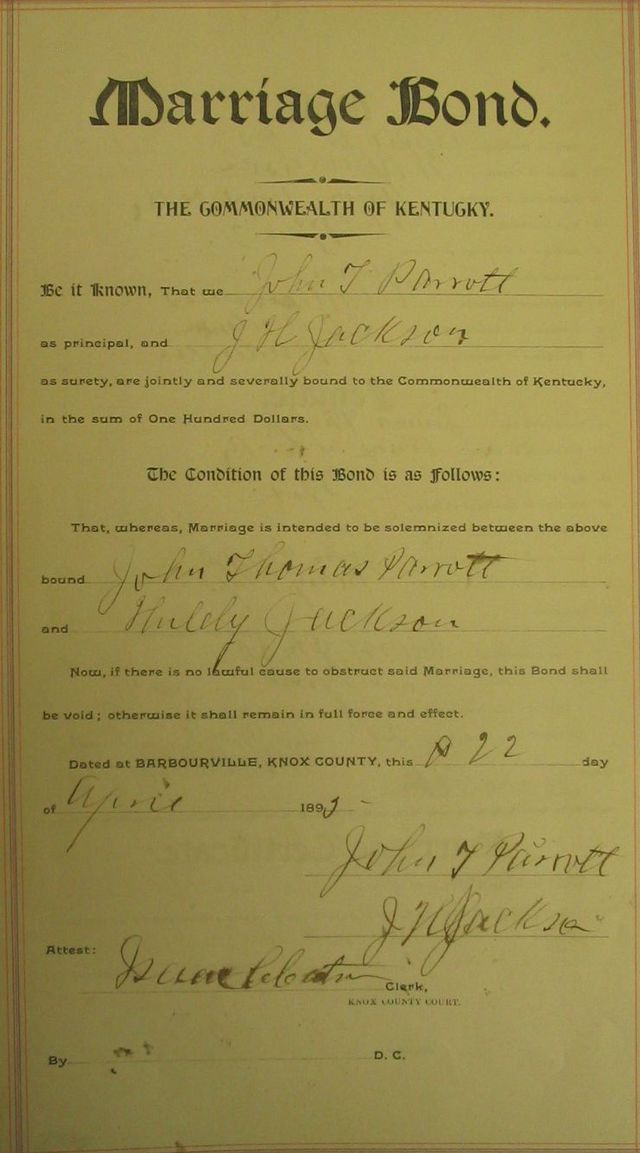 Marriage Bond.
THE COMMONWEALTH OF KENTUCKY.
Be it Known, That we John T Parrott
as principal, and J H Jackson
as surety, are jointly and severally bound to the Commonwealth of Kentucky,
in the sum of One Hundred Dollars.
The Condition of this Bond is as Follows:
That, whereas, Marriage is intended to be solemnized between the above
bound John Thomas Parrott
and Huldy Jackson
Now, if there is no lawful cause to obstruct said Marriage, this Bond shall
be void; otherwise it shall remain in full force and effect.
Dated at BARBOURVILLE, KNOX COUNTY, this 22 day
of April 189
John T Parrott
J H Jackson
Attest:
Isaac Clerk,
KNOX COUNTY COURT.
By D. C.